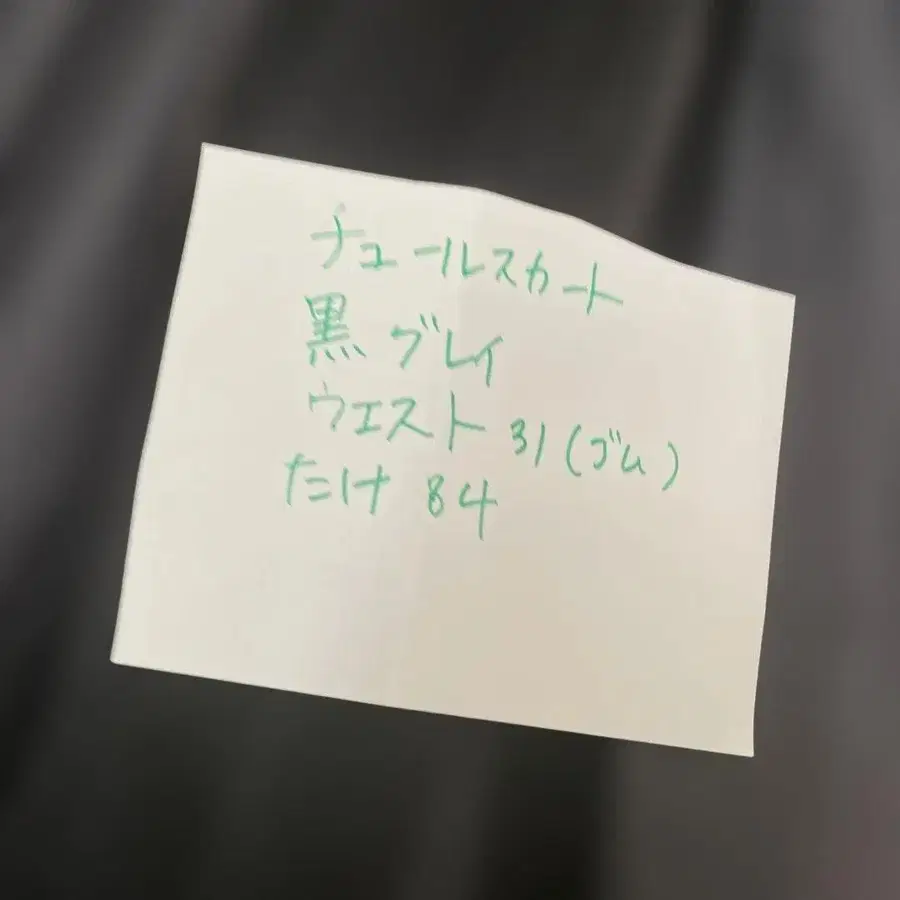 チュールスカート
黒 グレイ
ウエスト 31 (ゴム)
たけ 84